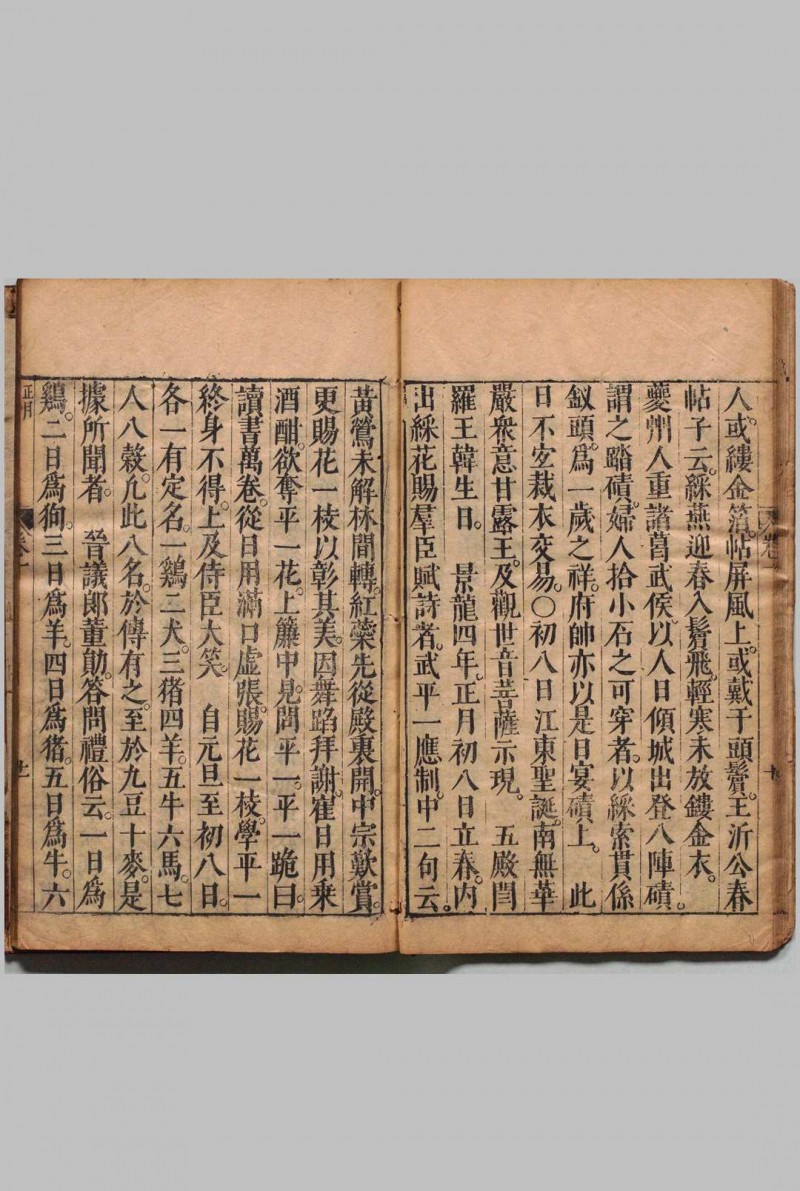 卷一
人。或縷金箔。帖屏風上。或戴于頭鬢。王沂公春
帖子云。綵燕迎春入鬢飛。輕寒未放鏤金衣。
夔州人重諸葛武侯。以人日傾城出登八陣磧。
謂之踏磧。婦人拾小石之可穿者。以綵索貫係
釵頭。爲一歲之祥。府帥亦以是日宴磧上。 此
日不宐裁衣交易。〇初八日江東聖誕。南無華
嚴衆意甘露王。及觀世音菩薩示現。 五殿閆
羅王韓生日。 景龍四年。正月初八日立春。內
出綵花賜羣臣賦詩者。武平一應制。中二句云。
黃鶯未解林間囀。紅蘂先從殿裏開。中宗歎賞。
更賜花一枝以彰其美。因舞蹈拜謝。崔日用乘
酒酣。欲奪平一花。上簾中見。問平一。平一跪曰。
讀書萬卷。從日用滿口虛張。賜花一枝。學平一
終身不得。上及侍臣大笑。 自元旦至初八日。
各一有定名。一鷄二犬。三猪四羊。五牛六馬。七
人八穀。凢此八名。於傳有之。至於九豆十麥。是
據所聞者。 晉議郞董勛。答問禮俗云。一日爲
鷄。二日爲狗。三日爲羊。四日爲猪。五日爲牛。六
正月
卷一